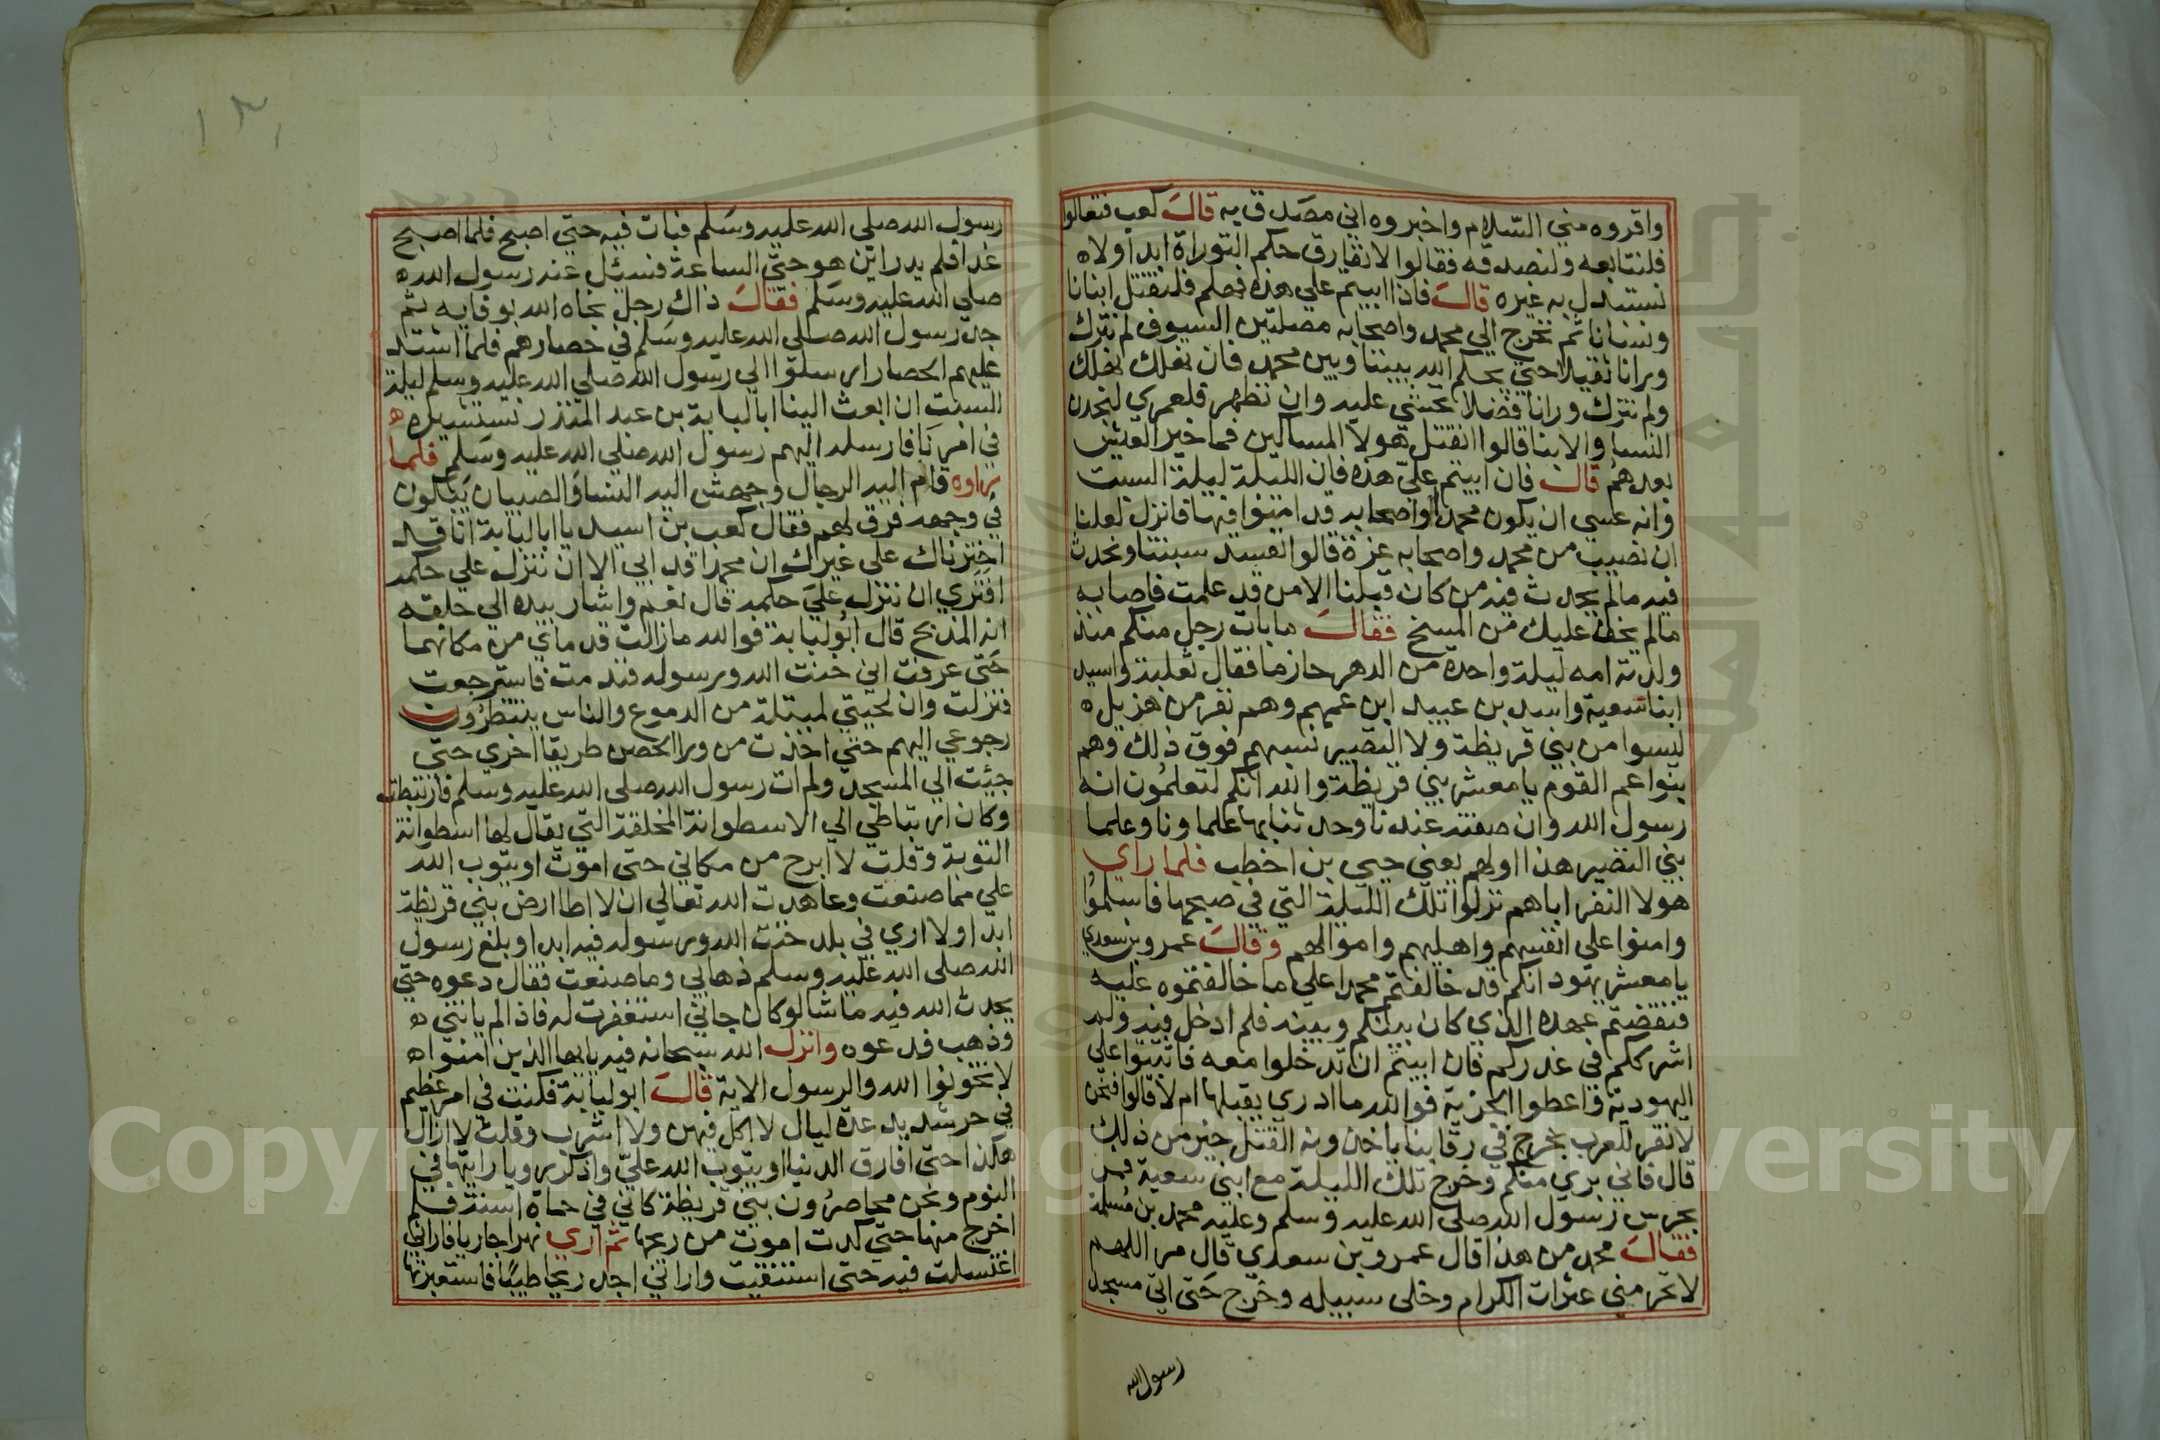 واقروه مني السلام واخبروه اني مصدق به قال كعب فتعالوا
فلنتابعه ولنصدقه فقالوا لا نفارق حكم التوراة ابدا ولا ه
نستبدل به غيره قال فاذا ابيتم علي هذه فهلم فلنقتل ابنانا
ونسانا ثم نخرج الي محمد واصحابه مصلتين السيوف لم نترك
ورانا ثقيلا حتي يحكم الله بيننا وبين محمد فان نهلك نهلك
ولم نترك ورانا فضلا نخشي عليه وان نظهر فلعمري لنجدن
النسا والابنا قالوا انقتل هولا المساكين فما خير العيش
بعدهم قال فان ابيتم علي هذه فان الليلة ليلة السبت
وانه عسي ان يكون محمدا واصحابه قد امنوا فيها فانزل لعلنا
ان نصيب من محمد واصحابه غرة قالوا نفسد سبتنا ونحدث
فيه مالم يحدث فيه من كان قبلنا الا من قد علمت فاصابه
مالم يخف عليك من المسخ فقال ما بات رجل منكم منذ
ولدته امه ليلة واحدة من الدهر حازما فقال ثعلبة واسيد
ابنا سعية واسد بن عبيد ابن عمهم وهم نفر من هزيل ه
ليسوا من بني قريظة ولا النضير نسبهم فوق ذلك وهم
بنوا عم القوم يا معشر بني قريظة والله انكم لتعلمون انه
رسول الله وان صفته عندنا وحدثنا بها علماونا وعلما
بني النضير هذا اولهم يعني حيي بن اخطب فلما راي
هولا النفر اباهم نزلوا تلك الليلة التي في صبحها فاسلموا
وامنوا علي انفسهم واهليهم واموالهم وقال عمرو بن سعدي
يا معشر يهود انكم قد خالفتم محمدا علي ما خالفتموه عليه
فنقضتم عهده الذي كان بينكم وبينه فلم ادخل فيه ولم
اشرككم في غدركم فان ابيتم ان تدخلوا معه فاثبتوا علي
اليهودية واعطوا الجزية فوالله ما ادري يقبلها ام لا قالوا فنحن
لا نقر للعرب بخرج في رقابنا ياخذونه القتل خير من ذلك
قال فاني بري منكم وخرج تلك الليلة مع ابني سعية فمر
بحرس رسول الله صلي الله عليه وسلم وعليه محمد بن مسلمة
فقال محمد من هذا قال عمرو بن سعدي قال مر اللهم
لا تحرمني عثرات الكرام وخلى سبيله وخرج حتى اتي مسجد
رسول الله
رسول الله صلي الله عليه وسلم فبات فيه حتي اصبح فلما اصبح
غدا فلم يدر اين هو حتي الساعة فسئل عنه رسول الله ه
صلي الله عليه وسلم فقال ذاك رجل نجاه الله بوفايه ثم
جد رسول الله صلي الله عليه وسلم في حصارهم فلما اشتد
عليهم الحصار ارسلوا الي رسول الله صلي الله عليه وسلم ليلة
السبت ان ابعث الينا ابا لبابة بن عبد المنذر نستشيره ه
في امرنا فارسله اليهم رسول الله صلي الله عليه وسلم فلما
راوه قام اليه الرجال وجهش اليه النسا والصبيان يبكون
في وجهه فرق لهم فقال كعب بن اسيد يا ابا لبابة انا قد
اخترناك علي غيرك ان محمدا قد ابي الا ان ننزل علي حكمه
افتري ان ننزل علي حكمه قال نعم واشار بيده الي حلقه
انه الذبح قال ابو لبابة فوالله ما زالت قدماي من مكانهما
حتى عرفت اني خنت الله ورسوله فندمت فاسترجعت
فنزلت وان لحيتي لمبتلة من الدموع والناس ينتظرون
رجوعي اليهم حتي اخذت من ورا الحصن طريقا اخري حتي
جئت الي المسجد ولم ات رسول الله صلي الله عليه وسلم فارتبطت
وكان ارتباطي الي الاسطوانة المخلقة التي يقال لها اسطوانة
التوبة وقلت لا ابرح من مكاني حتى اموت او يتوب الله
علي مما صنعت وعاهدت الله تعالي ان لا اطا ارض بني قريظة
ابدا ولا اري في بلد خنت الله ورسوله فيه ابدا وبلغ رسول
الله صلى الله عليه وسلم ذهابي وما صنعت فقال دعوه حتي
يحدث الله فيه ما شا لو كان جاني استغفرت له فاذا لم ياتني ه
وذهب فدعوه وانزل الله سبحانه فيه يا ايها الذين امنوا ه
لا تخونوا الله والرسول الاية قال ابو لبابة فكنت في امر عظيم
في حر شديد عدة ليال لا اكل فيهن ولا اشرب وقلت لا ازال
هكذا حتي افارق الدنيا او يتوب الله علي واذكر رويا رايتها في
النوم ونحن محاصرون بني قريظة كاني في حماة اسنة فلم
اخرج منها حتي كدت اموت من ريحها ثم اري نهرا جاريا فاراني
اغتسلت فيه حتى استنقيت واراني اجد ريحا طيبا فاستعبرتها
Copyright © King Saud University